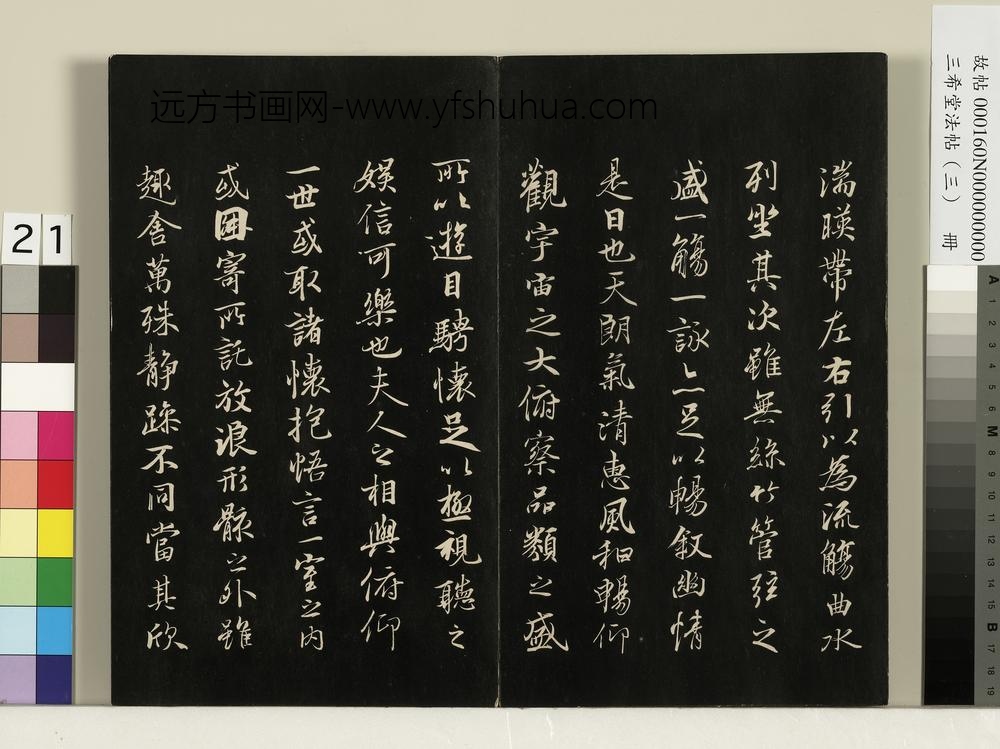 湍暎帶左右引以為流觴曲水
列坐其次雖無絲竹管弦之
盛一觴一詠亦足以暢叙幽情
是日也天朗氣清惠風和暢仰
觀宇宙之大俯察品類之盛
所以遊目騁懷足以極視聽之
娛信可樂也夫人之相與俯仰
一世或取諸懷抱悟言一室之內
或因寄所託放浪形骸之外雖
趣舍萬殊靜躁不同當其欣
远方书画网-www.yfshuhua.com
故帖 000160N000000000
三希堂法帖(三) 冊
21
A 1 2 3 4 5 6 M 8 9 10 11 12 13 14 15 B 17 18 19